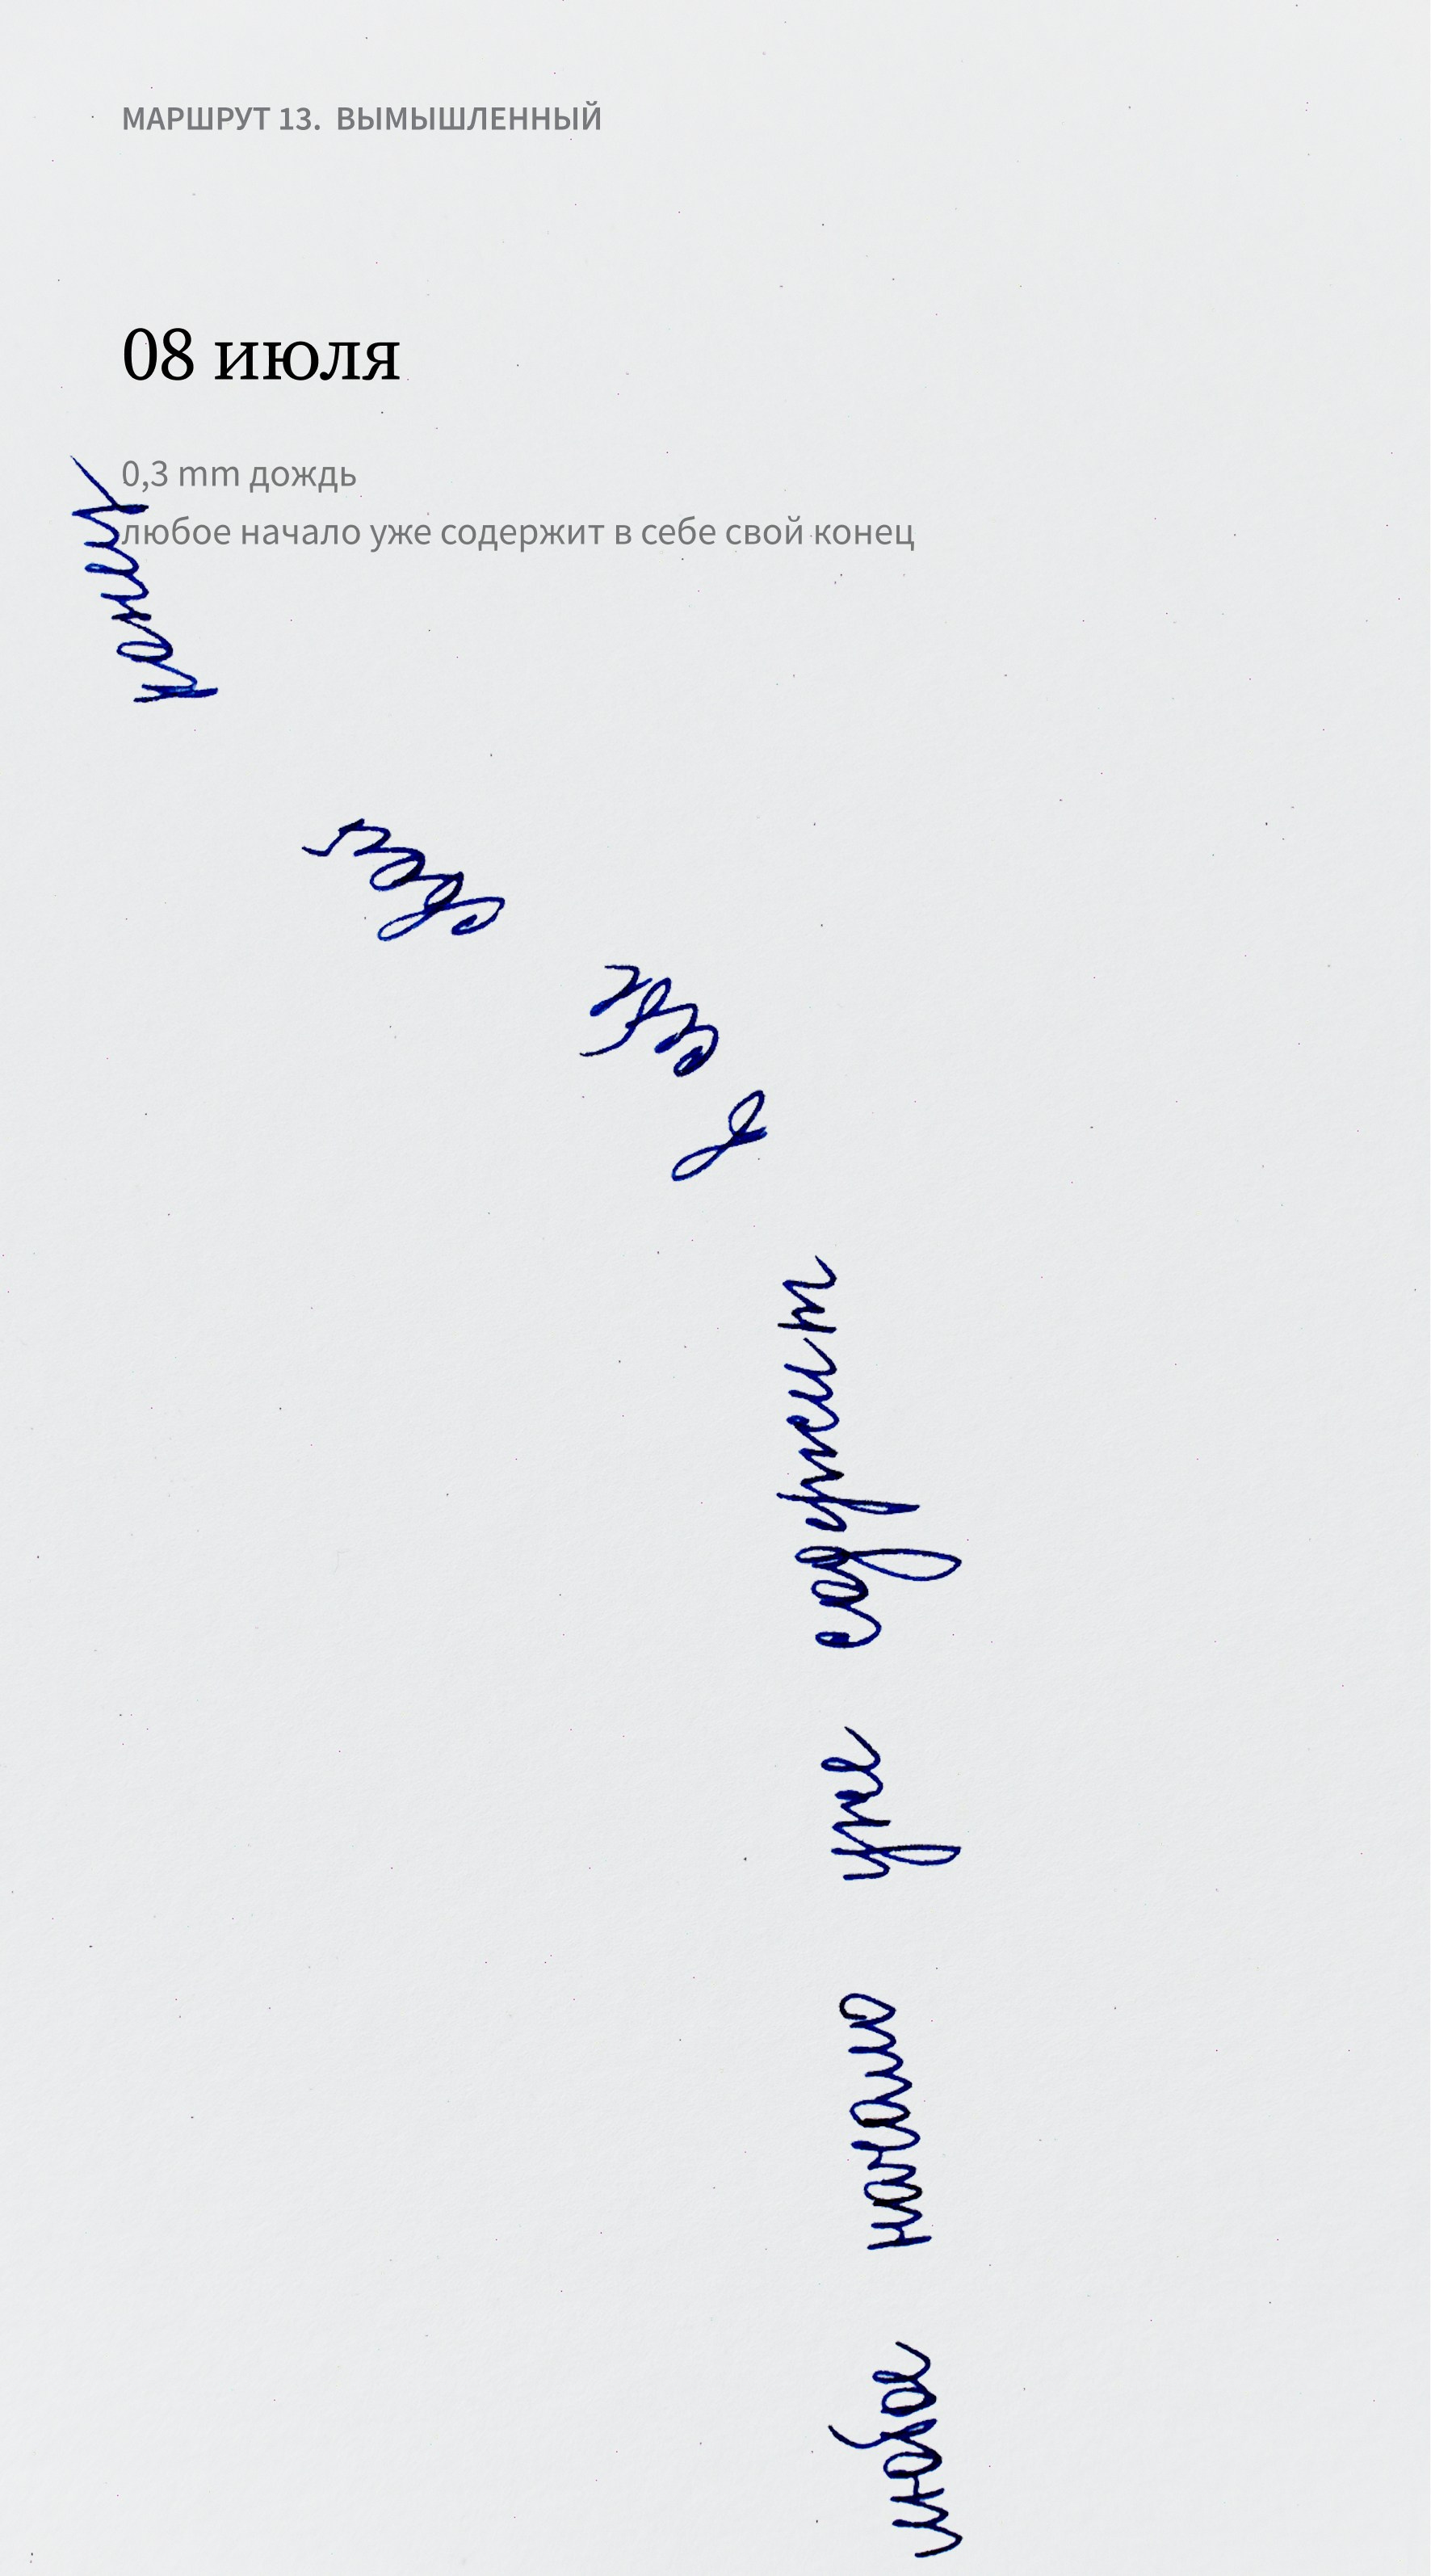 МАРШРУТ 13. ВЫМЫШЛЕННЫЙ
08 июля
0,3 mm дождь
любое начало уже содержит в себе свой конец
любое начало уже содержит в себе свой конец